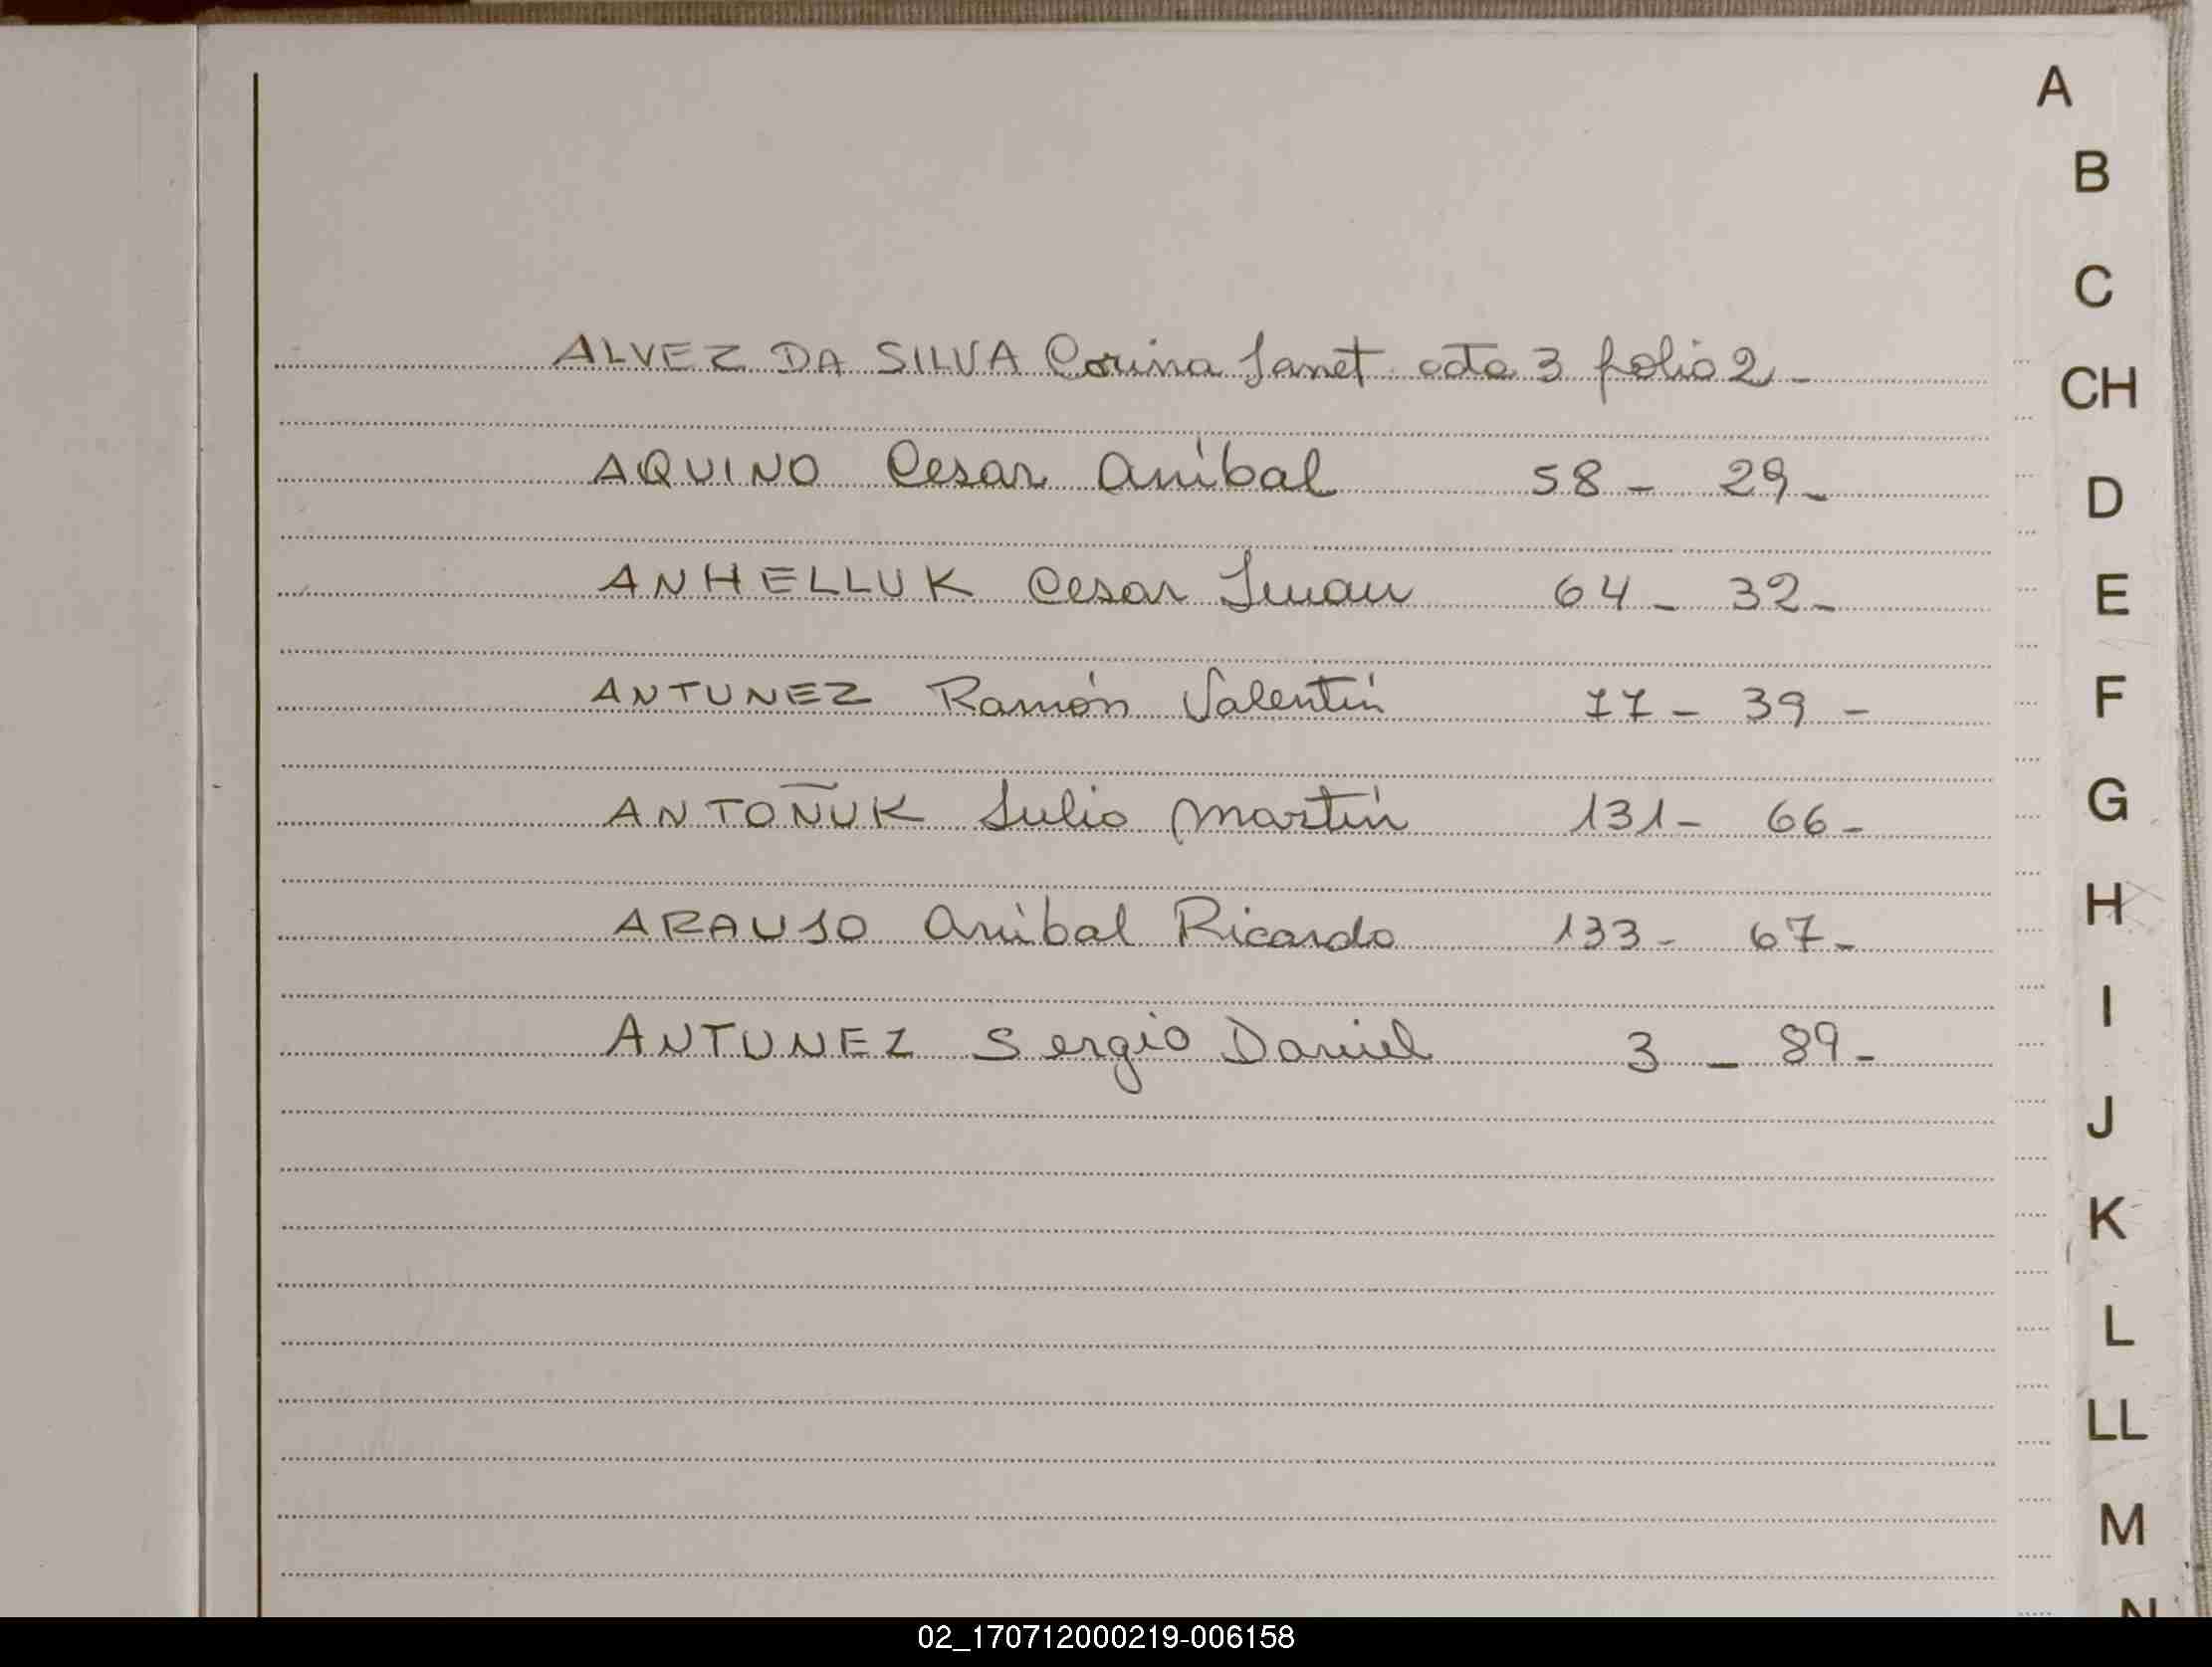 A
B
C
ALVEZ DA SILVA Corina Janet acta 3 folio 2 -
CH
AQUINO Cesar Anibal 58 - 29 -
D
ANHELLUK Cesar 64 - 32 -
E
ANTUNEZ Ramón Valentín 77 - 39 -
F
ANTOÑUK Julio Martín 131 - 66 -
G
ARAUJO Anibal Ricardo 133 - 67 -
H
I
ANTUNEZ Sergio Daniel 3 - 89 -
J
K
L
LL
M
N
02_170712000219-006158